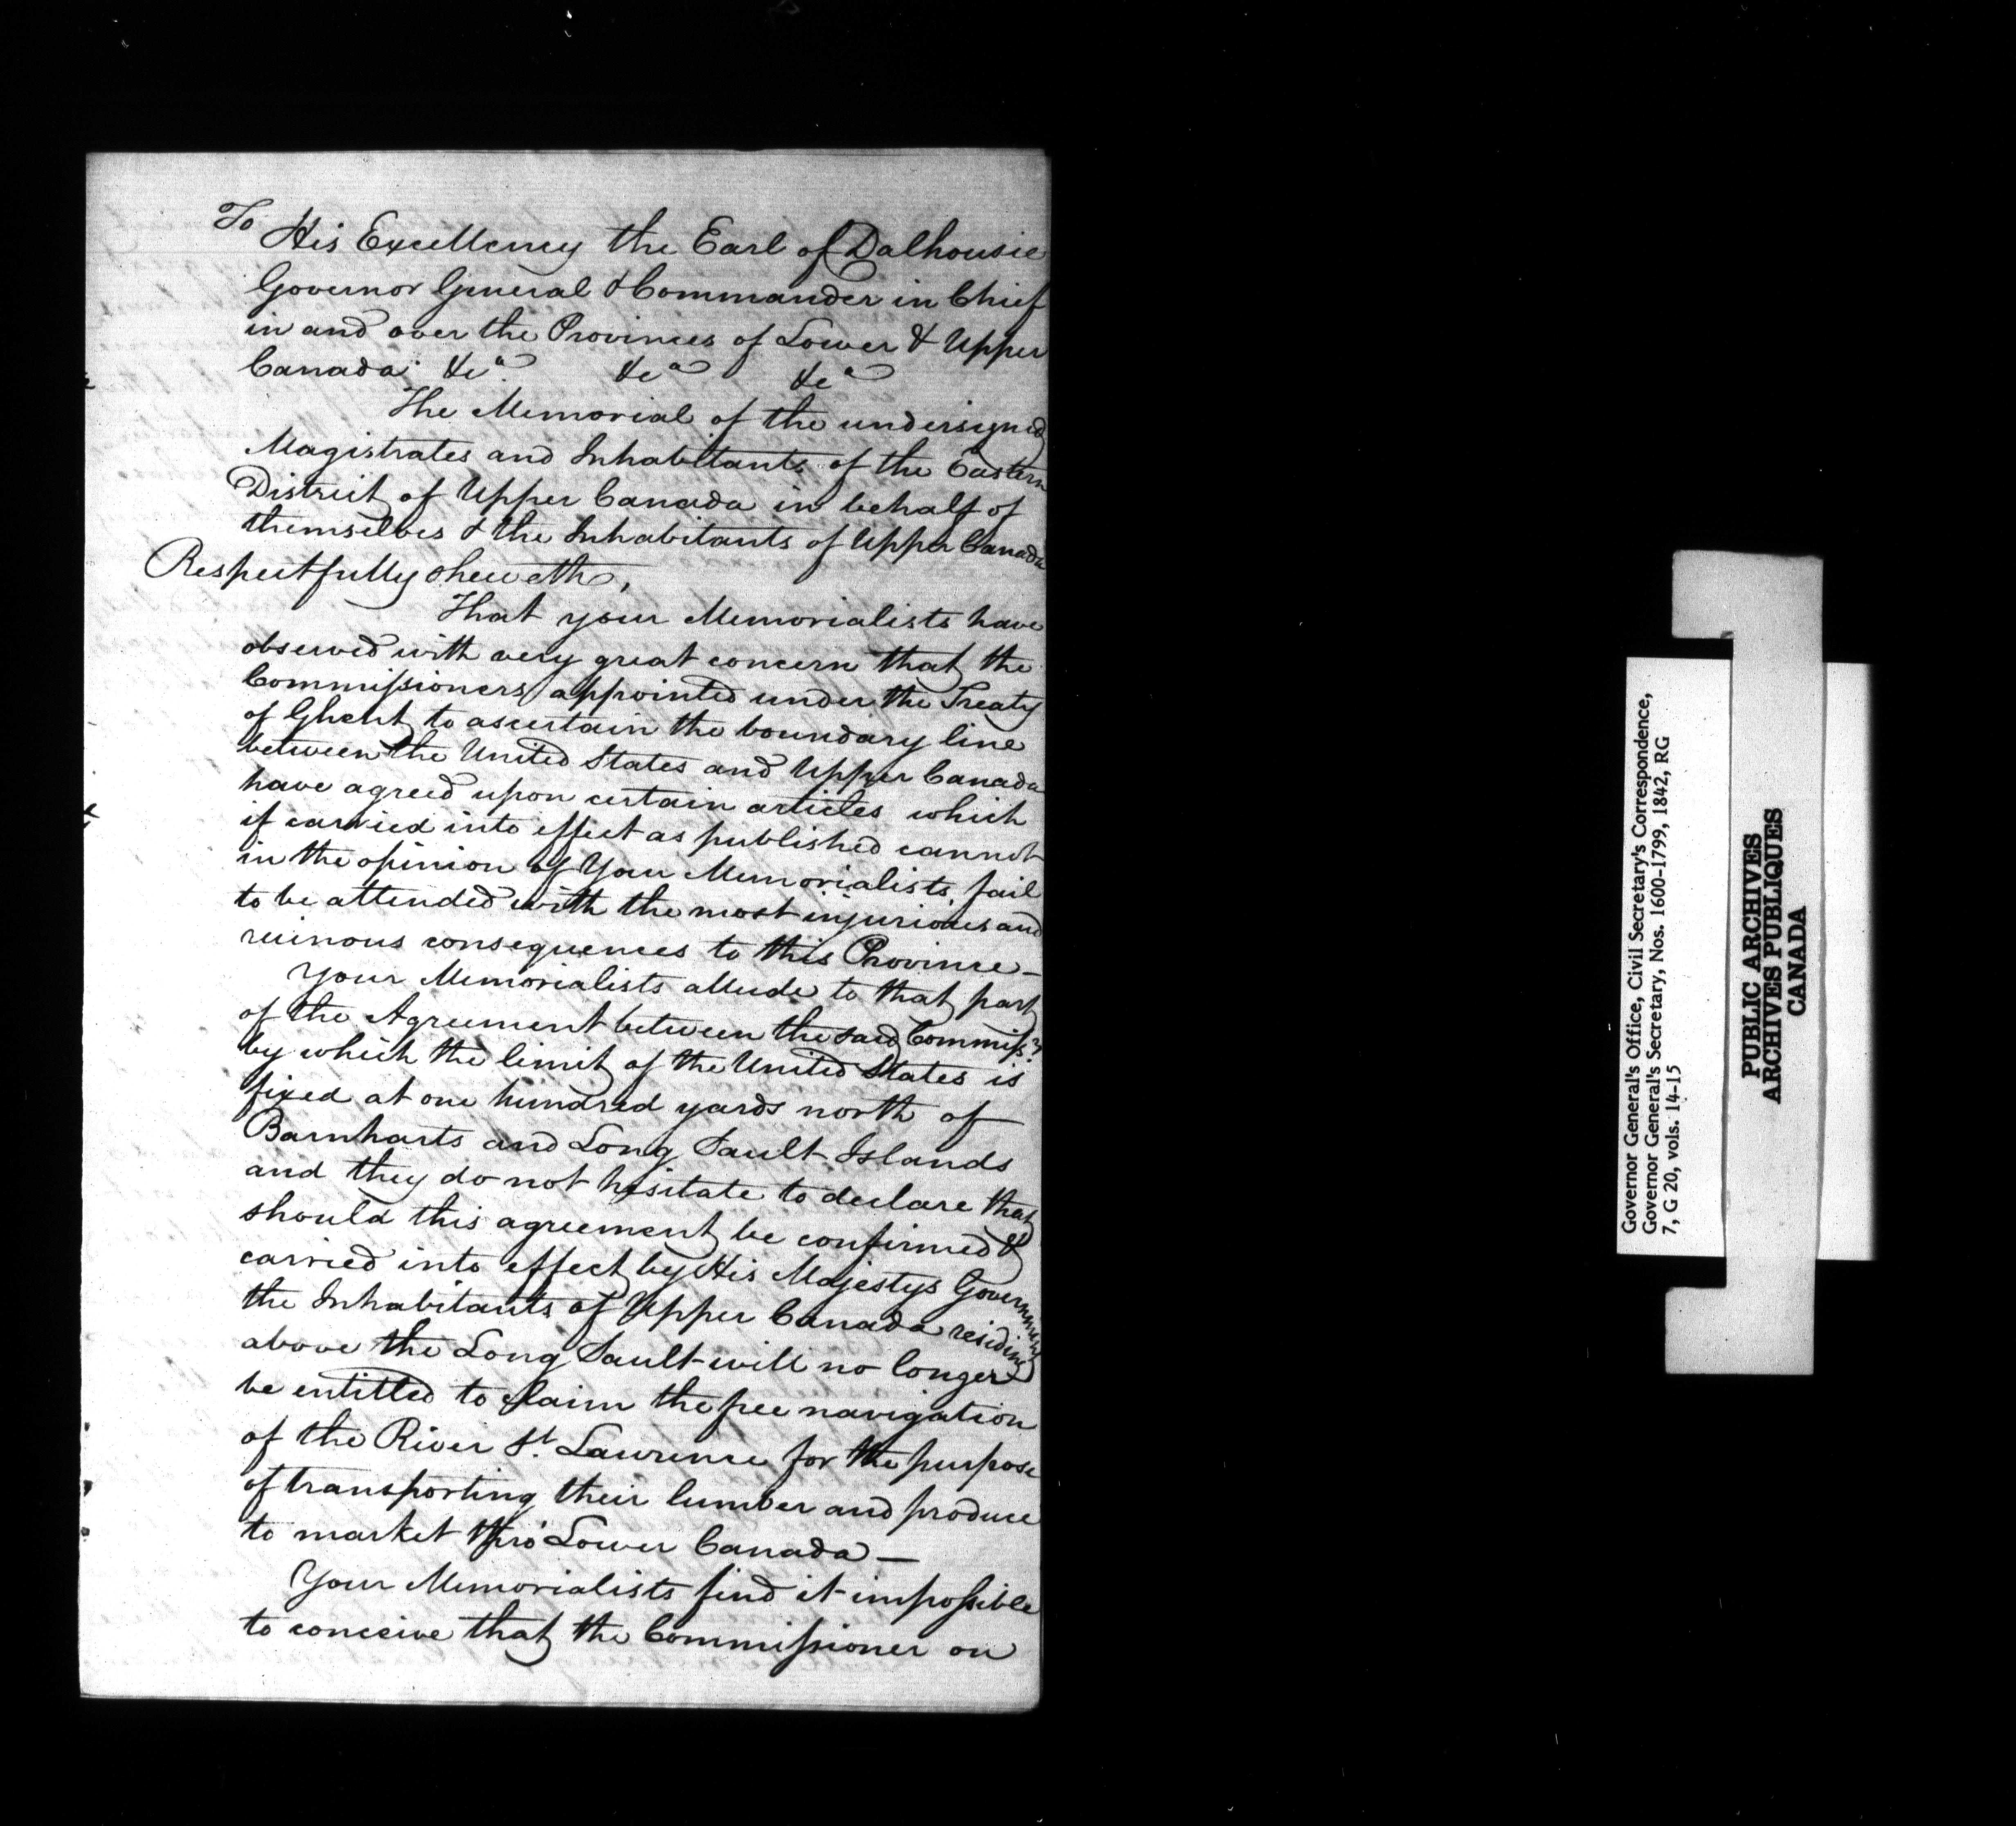 To His Excellency the Earl of Dalhousie
Governor General & Commander in Chief
in and over the Provinces of Lower & Upper
Canada &cª &cª &cª
The Memorial of the undersigned
Magistrates and Inhabitants of the Eastern
District of Upper Canada in behalf of
themselves & the Inhabitants of Upper Canada
Respectfully sheweth,
That your Memorialists have
observed with very great concern that the
Commissioners appointed under the Treaty
of Ghent to ascertain the boundary line
between the United States and Upper Canada
have agreed upon certain articles which
if carried into effect as published cannot
in the opinion of Your Memorialists, fail
to be attended with the most injurious and
ruinous consequences to this Province –
Your Memorialists allude to that part
of the Agreement between the said Commissrs
by which the limit of the United States is
fixed at one hundred yards north of
Barnharts and Long Sault Islands
and they do not hesitate to declare that
should this agreement be confirmed &
carried into effect by His Majestys Government
the Inhabitants of Upper Canada residing
above the Long Sault will no longer
be entitled to claim the free navigation
of the River St. Lawrence for the purpose
of transporting their lumber and produce
to market thro' Lower Canada –
Your Memorialists find it impossible
to conceive that the Commissioner on
Governor General's Office, Civil Secretary's Correspondence,
Governor General's Secretary, Nos. 1600-1799, 1842, RG
7, G 20, vols. 14-15
PUBLIC ARCHIVES
ARCHIVES PUBLIQUES
CANADA